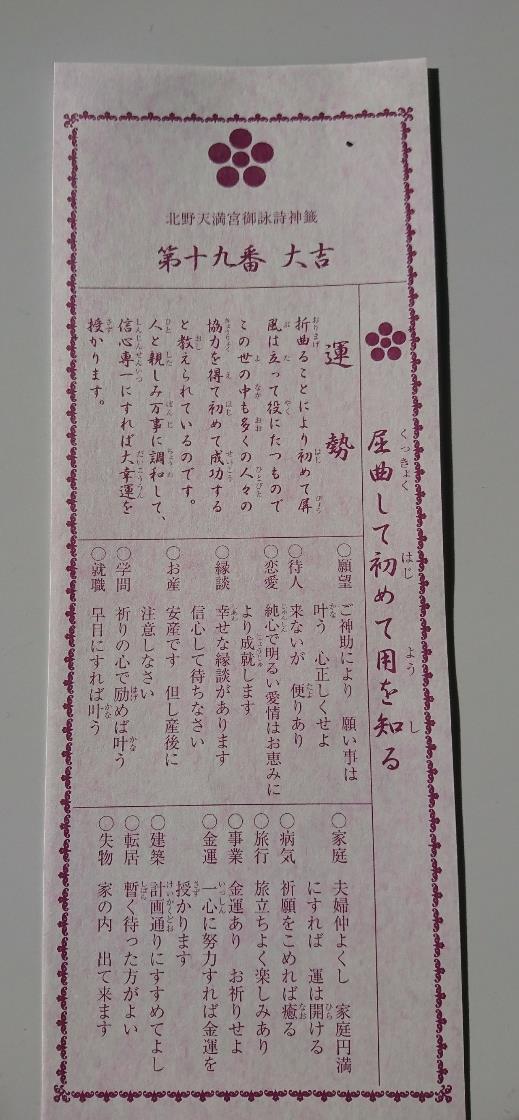 北野天満宮御詠詩神籤
第十九番 大吉
屈曲して初めて用を知る
運勢
折曲ることにより初めて屏
風は立って役にたつもので
この世の中も多くの人々の
協力を得て初めて成功する
と教えられているのです。
人と親しみ万事に調和して、
信心専一にすれば大幸運を
授かります。
○願望 ご神助により 願い事は
叶う 心正しくせよ
○待人 来ないが 便りあり
○恋愛 純心で明るい愛情はお恵みに
より成就します
○縁談 幸せな縁談があります
信心して待ちなさい
○お産 安産です 但し産後に
注意しなさい
○学問 祈りの心で励めば叶う
○就職 早目にすれば叶う
○家庭 夫婦仲よくし 家庭円満
にすれば 運は開ける
○病気 祈願をこめれば癒る
○旅行 旅立ちよく楽しみあり
○事業 金運あり お祈りせよ
○金運 一心に努力すれば金運を
授かります
○建築 計画通りにすすめてよし
○転居 暫く待った方がよい
○失物 家の内 出て来ます